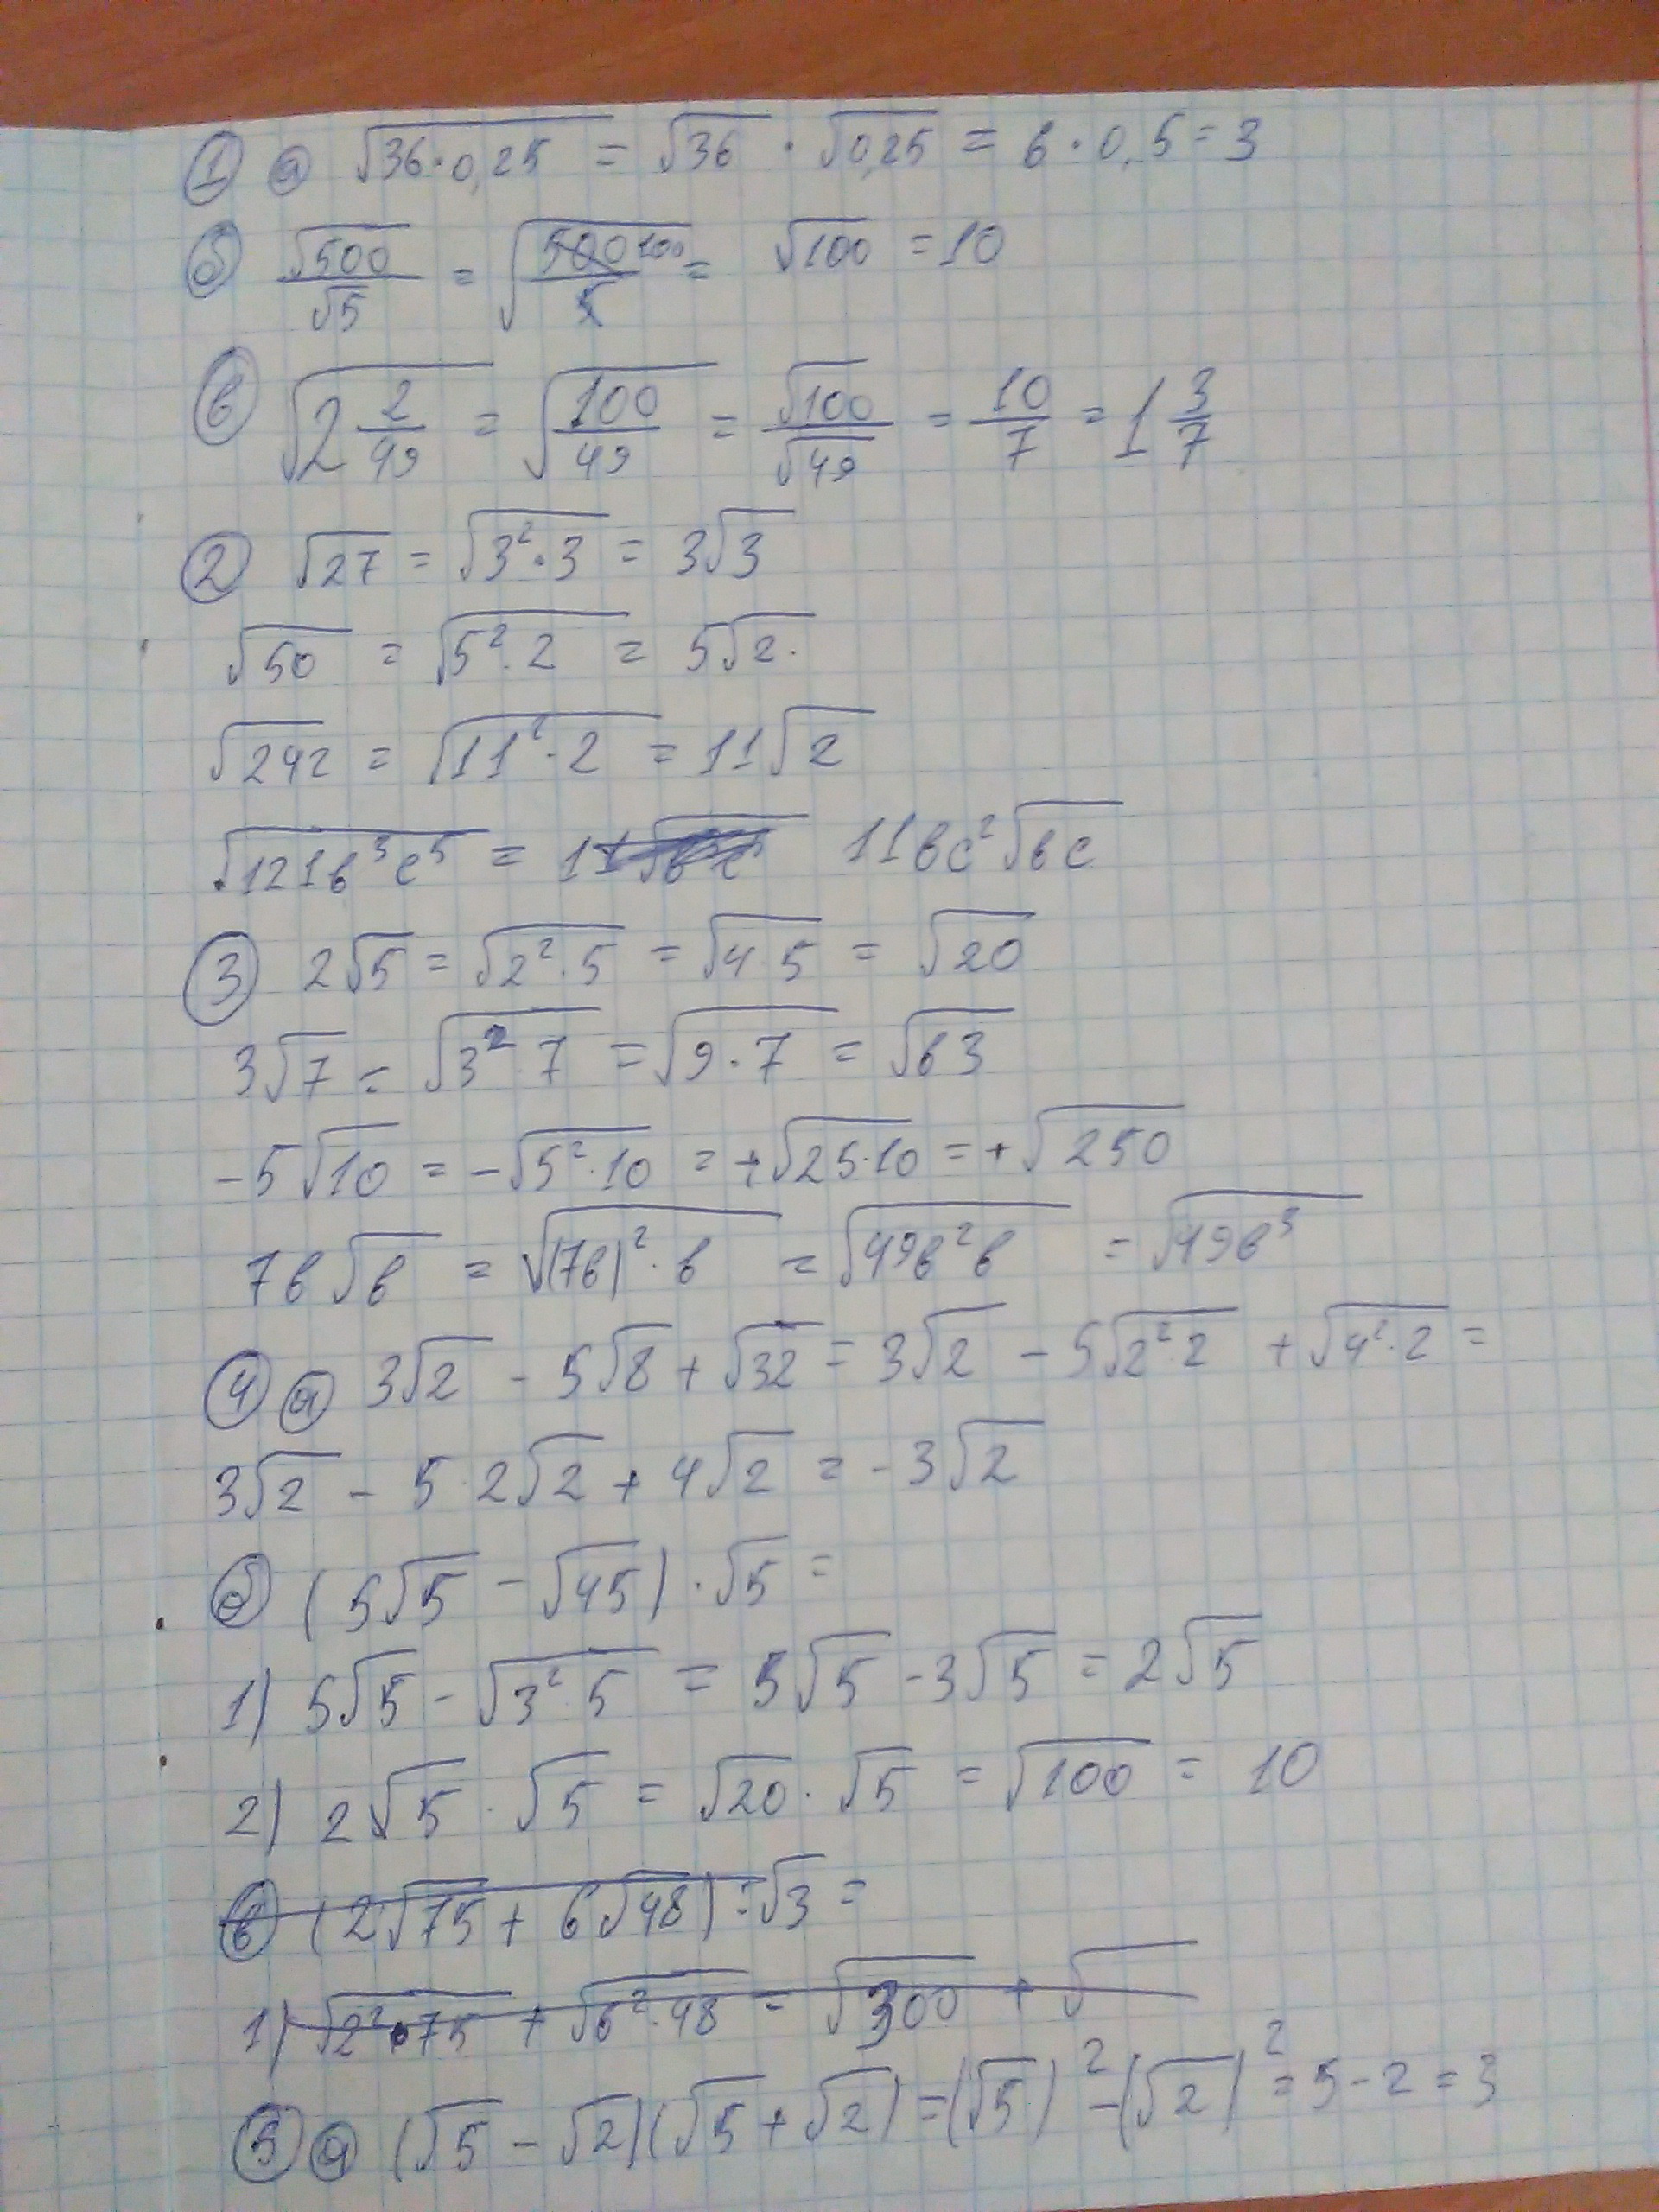 ① а √36·0,25 = √36 · √0,25 = 6·0,5=3
б √500/√5 = √500 100/5 = √100 =10
в √2 2/49 = √100/49 = √100/√49 = 10/7 = 1 3/7
② √27 = √3²·3 = 3√3
√50 = √5²·2 = 5√2.
√242 = √11²·2 = 11√2
√121в³c⁵ = 11 11вc²√вc
③ 2√5 = √2²·5 = √4·5 = √20
3√7 = √3²·7 = √9·7 = √63
-5√10 = -√5²·10 = +√25·10 = +√250
7в√в = √(7в)²·в = √49в²в = √49в³
④ а 3√2 - 5√8 + √32 = 3√2 - 5√2²·2 + √4²·2 =
3√2 - 5·2√2 + 4√2 = -3√2
б (5√5 - √45)·√5 =
1) 5√5 - √3²·5 = 5√5 - 3√5 = 2√5
2) 2√5 · √5 = √20 · √5 = √100 = 10
в (2√75 + 6√48) : √3 =
1) √2²·75 + √6²·48 = √300 + √
⑤ а (√5 - √2)(√5 + √2) = (√5)² - (√2)² = 5-2 = 3